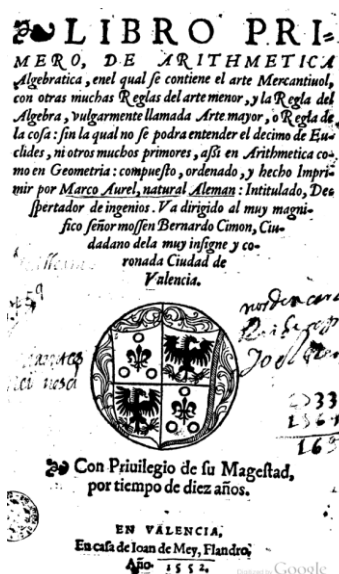 LIBRO PRI=
MERO, DE ARITHMETICA
Algebratica, enel qual se contiene el arte Mercantiuol,
con otras muchas Reglas del arte menor, y la Regla del
Algebra, vulgarmente llamada Arte mayor, o Regla de
la cosa: sin la qual no se podra entender el decimo de Eu-
clides, ni otros muchos primores, assi en Arithmetica co-
mo en Geometria: compuesto, ordenado, y hecho Impri-
mir por Marco Aurel, natural Aleman: Intitulado, Des
pertador de ingenios. Va dirigido al muy magni-
fico señor mossen Bernardo Cimon, Ciu-
dadano dela muy insigne y co-
ronada Ciudad de
Valencia.
Con Priuilegio de su Magestad,
por tiempo de diez años.
EN VALENCIA,
En casa de Ioan de Mey, Flandro,
Año 1552.
Google